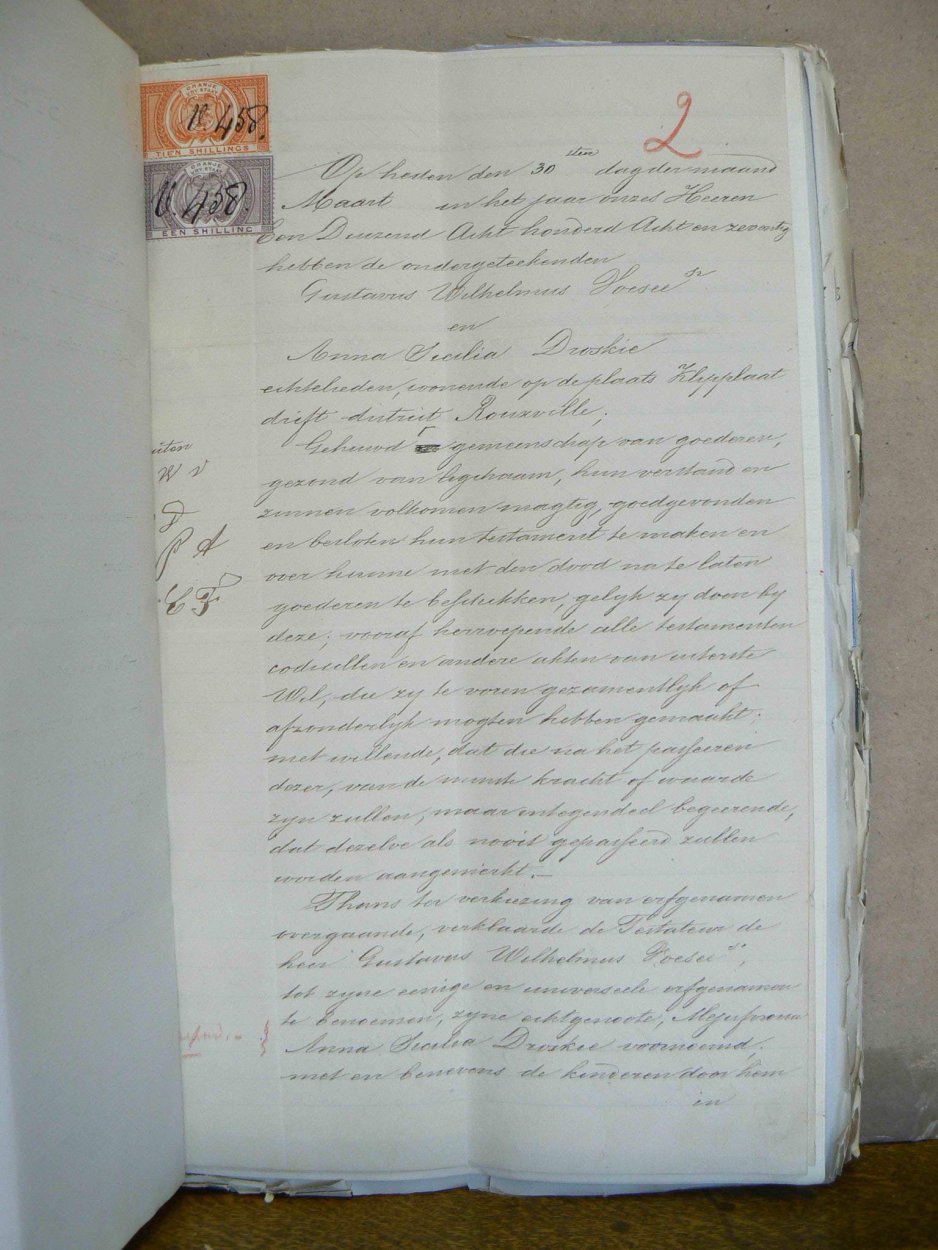 2
ORANJE
VRY STAAT
V. 458.
TIEN SHILLINGS
ORANJE
VRY STAAT
V. 458.
EEN SHILLING
Op heden den 30 sten dag der maand
Maart en het jaar onzes Heeren
Een Duizend Acht honderd Acht en zeventig
hebben de ondergeteekenden
Gustavus Wilhelmus Voeseé Sr
en
Anna Sicilia Droskie
echtelieden, wonende op de plaats Klipplaat
drift district Rouxville;
Gehuwd gemeenschap van goederen,
gezond van ligchaam, hun verstand en
zinnen volkomen magtig, goedgevonden
en besloten hun testament te maken en
over hunne met den dood na te laten
goederen te beschikken, gelyk zy doen by
deze; vooraf herroepende alle testamenten
codicillen en andere akten van uiterste
Wil, die zy te voren gezamentlyk of
afzonderlyk mogten hebben gemaakt;
met willende, dat die na het passeeren
dezer, van de minste kracht of waarde
zyn zullen, maar integendeel begeerende,
dat dezelve als nooit gepasseerd zullen
worden aangemerkt.—
Thans ter verkiezing van erfgenamen
overgaande, verklaarde de Testateur de
heer Gustavus Wilhelmus Voeseé Sr,
tot zyne eenige en universeele erfgenamen
te benoemen, zyne echtgenoote, Mejufvrouw
Anna Sicilia Droskie voornoemd;
met en benevens de kinderen door hem
in
W V
D
P A
E F